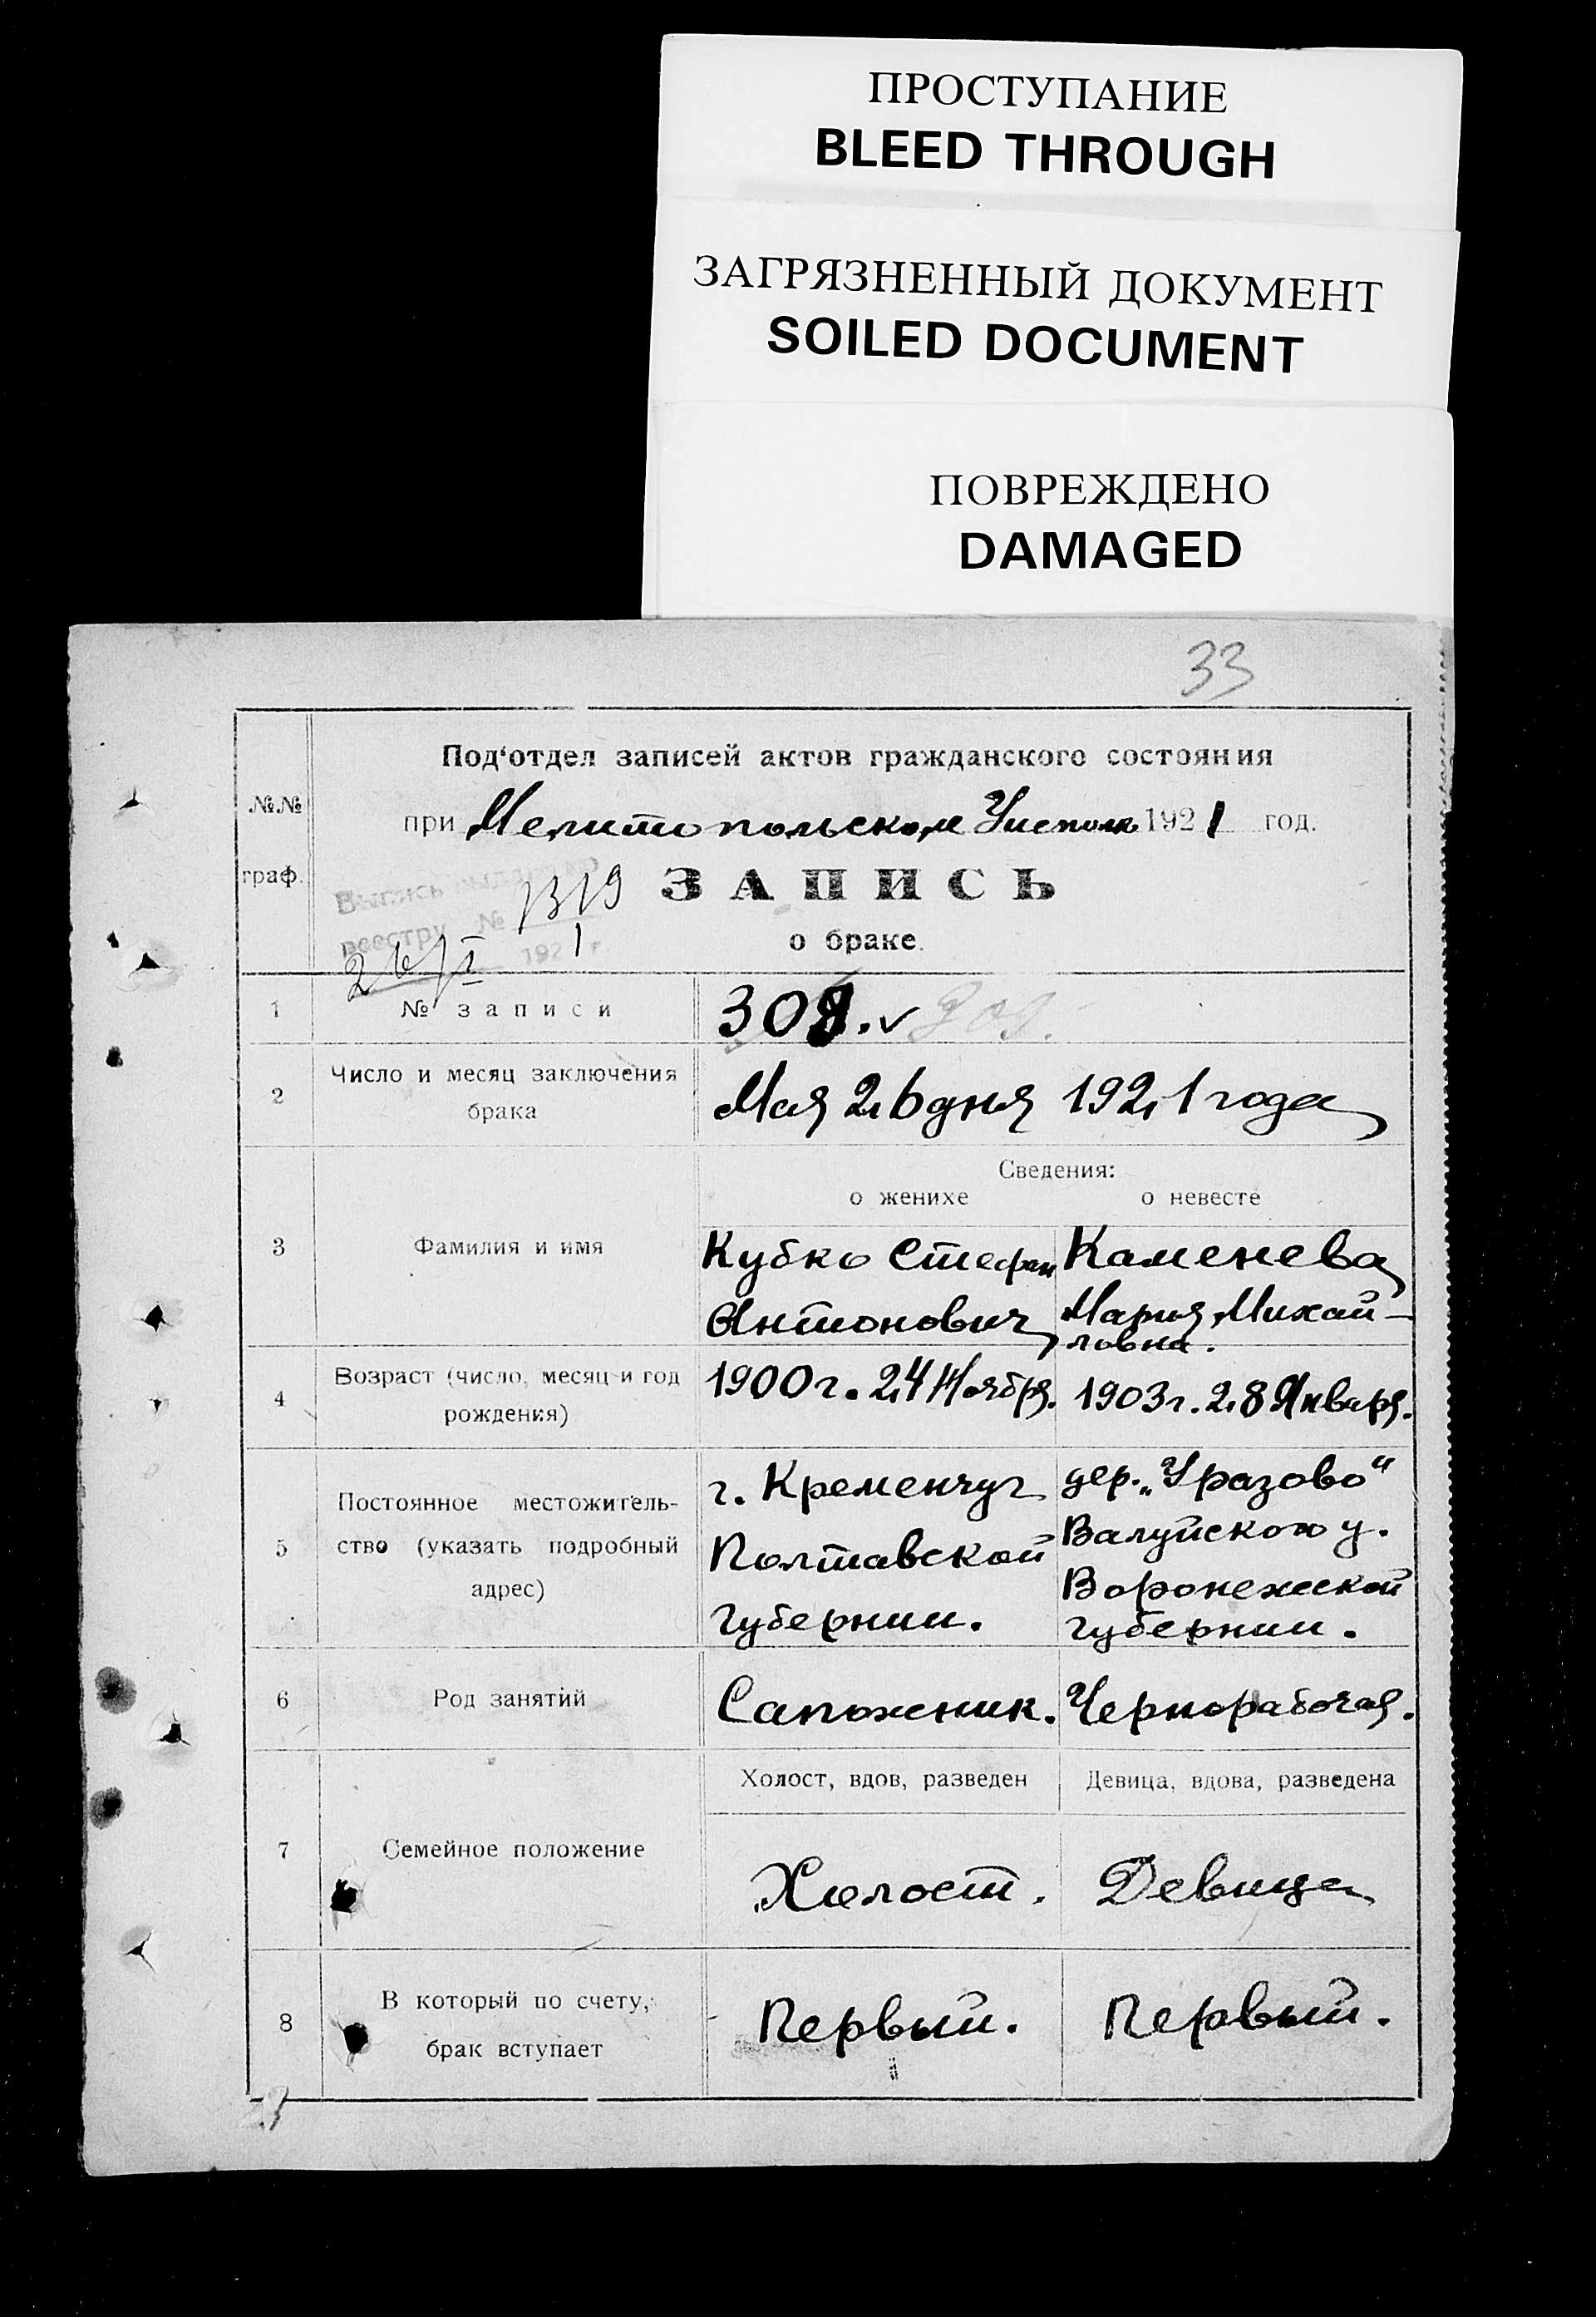 ПРОСТУПАНИЕ
BLEED THROUGH
ЗАГРЯЗНЕННЫЙ ДОКУМЕНТ
SOILED DOCUMENT
ПОВРЕЖДЕНО
DAMAGED
33
№№
граф.
Под‘отдел записей актов гражданского состояния
при Мелитопольском Уисполк 1921 год.
ЗАПИСЬ
о браке.
Выпись выдана по
реестру № 1319
26/V 1921 г.
1 № записи 308. 309.
2 Число и месяц заключения
брака
Мая 26 дня 1921 года
Сведения:
о женихе о невесте
3 Фамилия и имя
Кубко Стефан
Антонович
Каменева
Мария Михай-
ловна.
4 Возраст (число, месяц и год
рождения)
1900 г. 24 Ноября.
1903 г. 28 Января.
5 Постоянное местожитель-
ство (указать подробный
адрес)
г. Кременчуг
Полтавской
Губернии.
дер. „Уразово“
Валуйского у.
Воронежской
Губернии.
6 Род занятий
Сапожник.
Чернорабочая.
7 Семейное положение
Холост, вдов, разведен
Девица, вдова, разведена
Холост.
Девица
8 В который по счету,
брак вступает
Первый.
Первый.